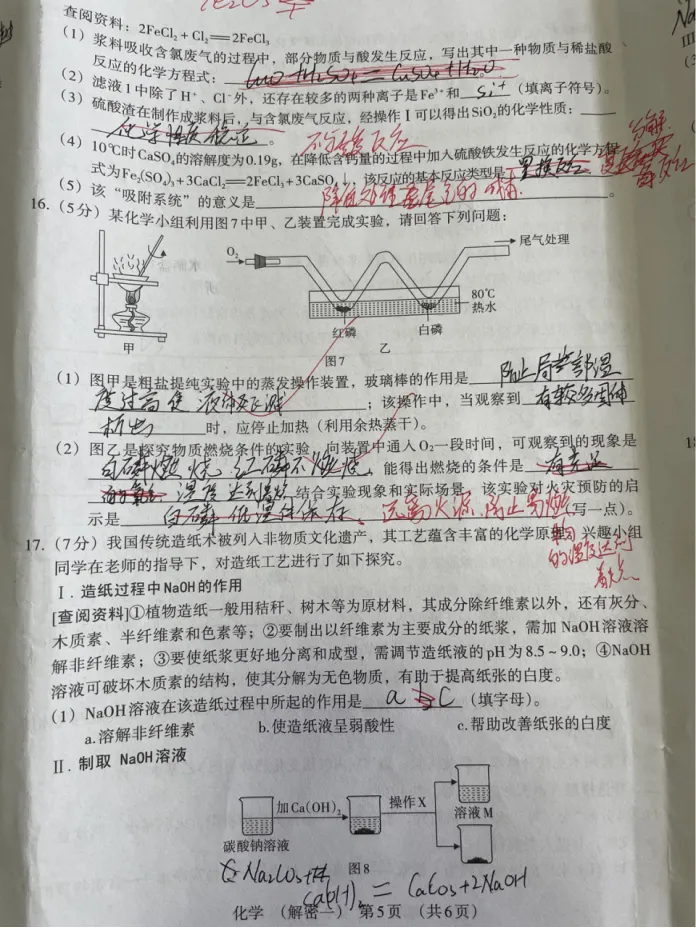 查阅资料：2FeCl₂ + Cl₂══2FeCl₃
（1）浆料吸收含氯废气的过程中，部分物质与酸发生反应，写出其中一种物质与稀盐酸
反应的化学方程式：CuO+H₂SO₄=CuSO₄+H₂O。
（2）滤液1中除了H⁺、Cl⁻外，还存在较多的两种离子是Fe³⁺和 Si⁺（填离子符号）。
（3）硫酸渣在制作成浆料后，与含氯废气反应，经操作Ⅰ可以得出SiO₂的化学性质：
化学性质稳定。 不与酸反应
（4）10℃时CaSO₄的溶解度为0.19g，在降低含钙量的过程中加入硫酸铁发生反应的化学方程
式为Fe₂(SO₄)₃+3CaCl₂══2FeCl₃+3CaSO₄↓，该反应的基本反应类型是 置换反应。 复分解反应
（5）该“吸附系统”的意义是
16.（5分）某化学小组利用图7中甲、乙装置完成实验，请回答下列问题：
O₂
尾气处理
80℃
热水
红磷
白磷
甲
乙
图7
（1）图甲是粗盐提纯实验中的蒸发操作装置，玻璃棒的作用是 防止局部温
度过高使液体飞溅；该操作中，当观察到 有较多固体
析出 时，应停止加热（利用余热蒸干）。
（2）图乙是探究物质燃烧条件的实验，向装置中通入O₂一段时间，可观察到的现象是
白磷燃烧，红磷不燃烧，能得出燃烧的条件是
温度达到着火点 结合实验现象和实际场景，该实验对火灾预防的启
示是 白磷低温保存、远离火源，防止易燃（写一点）。
物的温度达到
着火点
17.（7分）我国传统造纸术被列入非物质文化遗产，其工艺蕴含丰富的化学原理。兴趣小组
同学在老师的指导下，对造纸工艺进行了如下探究。
Ⅰ. 造纸过程中NaOH的作用
[查阅资料]①植物造纸一般用秸秆、树木等为原材料，其成分除纤维素以外，还有灰分、
木质素、半纤维素和色素等；②要制出以纤维素为主要成分的纸浆，需加 NaOH溶液溶
解非纤维素；③要使纸浆更好地分离和成型，需调节造纸液的pH为8.5～9.0；④NaOH
溶液可破坏木质素的结构，使其分解为无色物质，有助于提高纸张的白度。
（1）NaOH溶液在该造纸过程中所起的作用是 a c（填字母）。
a.溶解非纤维素 b.使造纸液呈弱酸性 c.帮助改善纸张的白度
Ⅱ. 制取 NaOH溶液
加Ca(OH)₂
操作X
碳酸钠溶液
溶液M
图8
Na₂CO₃+
Ca(OH)₂ = CaCO₃+2NaOH
化学（解密一） 第5页 （共6页）